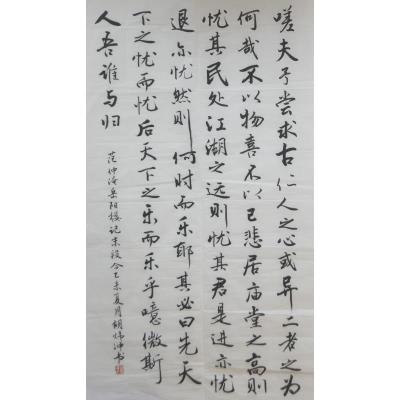 嗟夫予尝求古仁人之心或异二者之为
何哉不以物喜不以己悲居庙堂之高则
忧其民处江湖之远则忧其君是进亦忧
退亦忧然则何时而乐耶其必曰先天
下之忧而忧后天下之乐而乐乎噫微斯
人吾谁与归
范仲淹岳阳楼记末段乙未夏月胡炜冲书